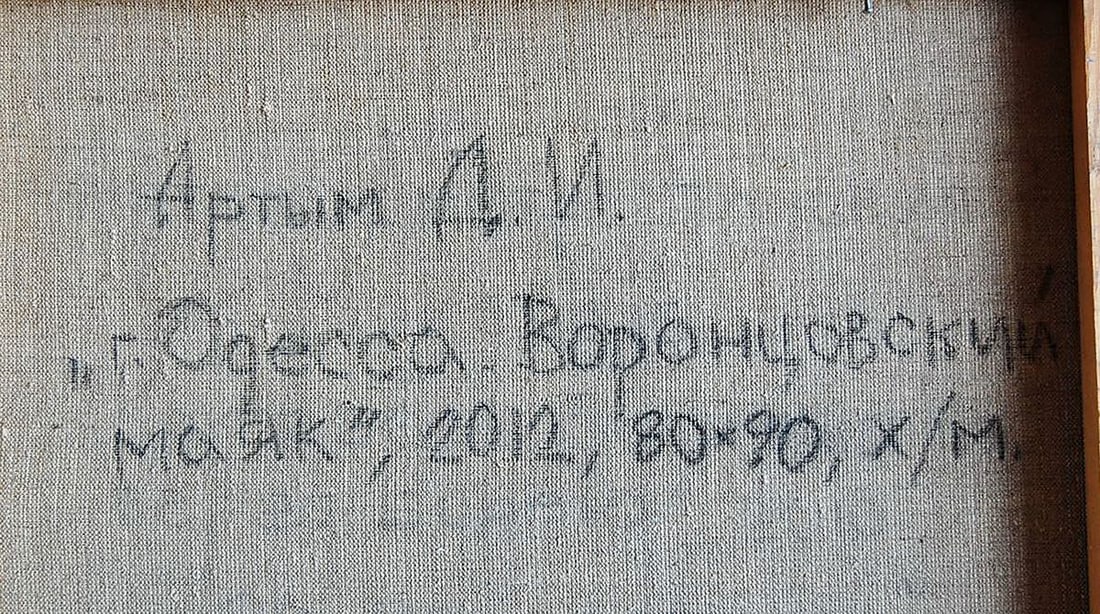 Артым Д. И.
„г. Одесса. Воронцовский
маяк", 2012, 80×90, х/м.